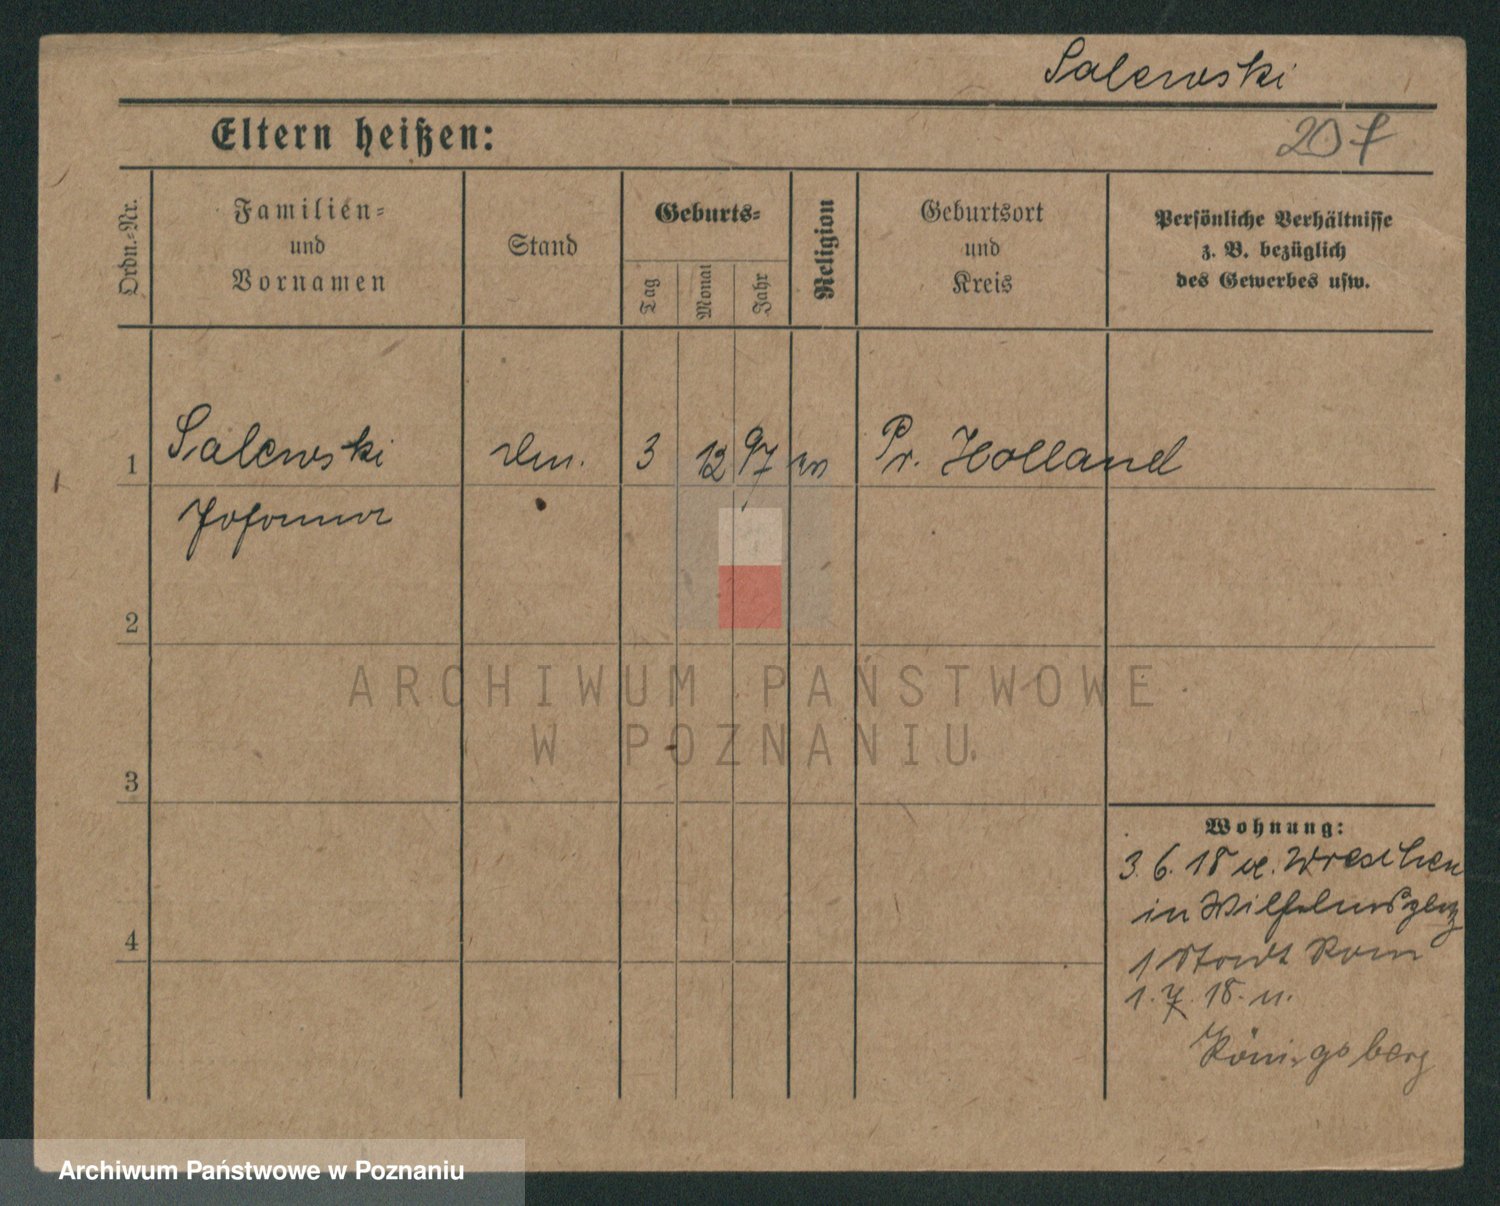 Salewski
Eltern heißen:
207
Ordn.-Nr.
Familien-
und
Vornamen
Stand
Geburts-
Tag
Monat
Jahr
Religion
Geburtsort
und
Kreis
Persönliche Verhältnisse
z. B. bezüglich
des Gewerbes usw.
1 Salewski 3 12 97 Pr. Holland
Johanna
2
3
4
Wohnung:
3. 6. 18 v. Wreschen
in Wilhelmsplatz
1 Stadt Rom
1. 7. 18. n.
Königsberg
ARCHIWUM PAŃSTWOWE
W POZNANIU
Archiwum Państwowe w Poznaniu